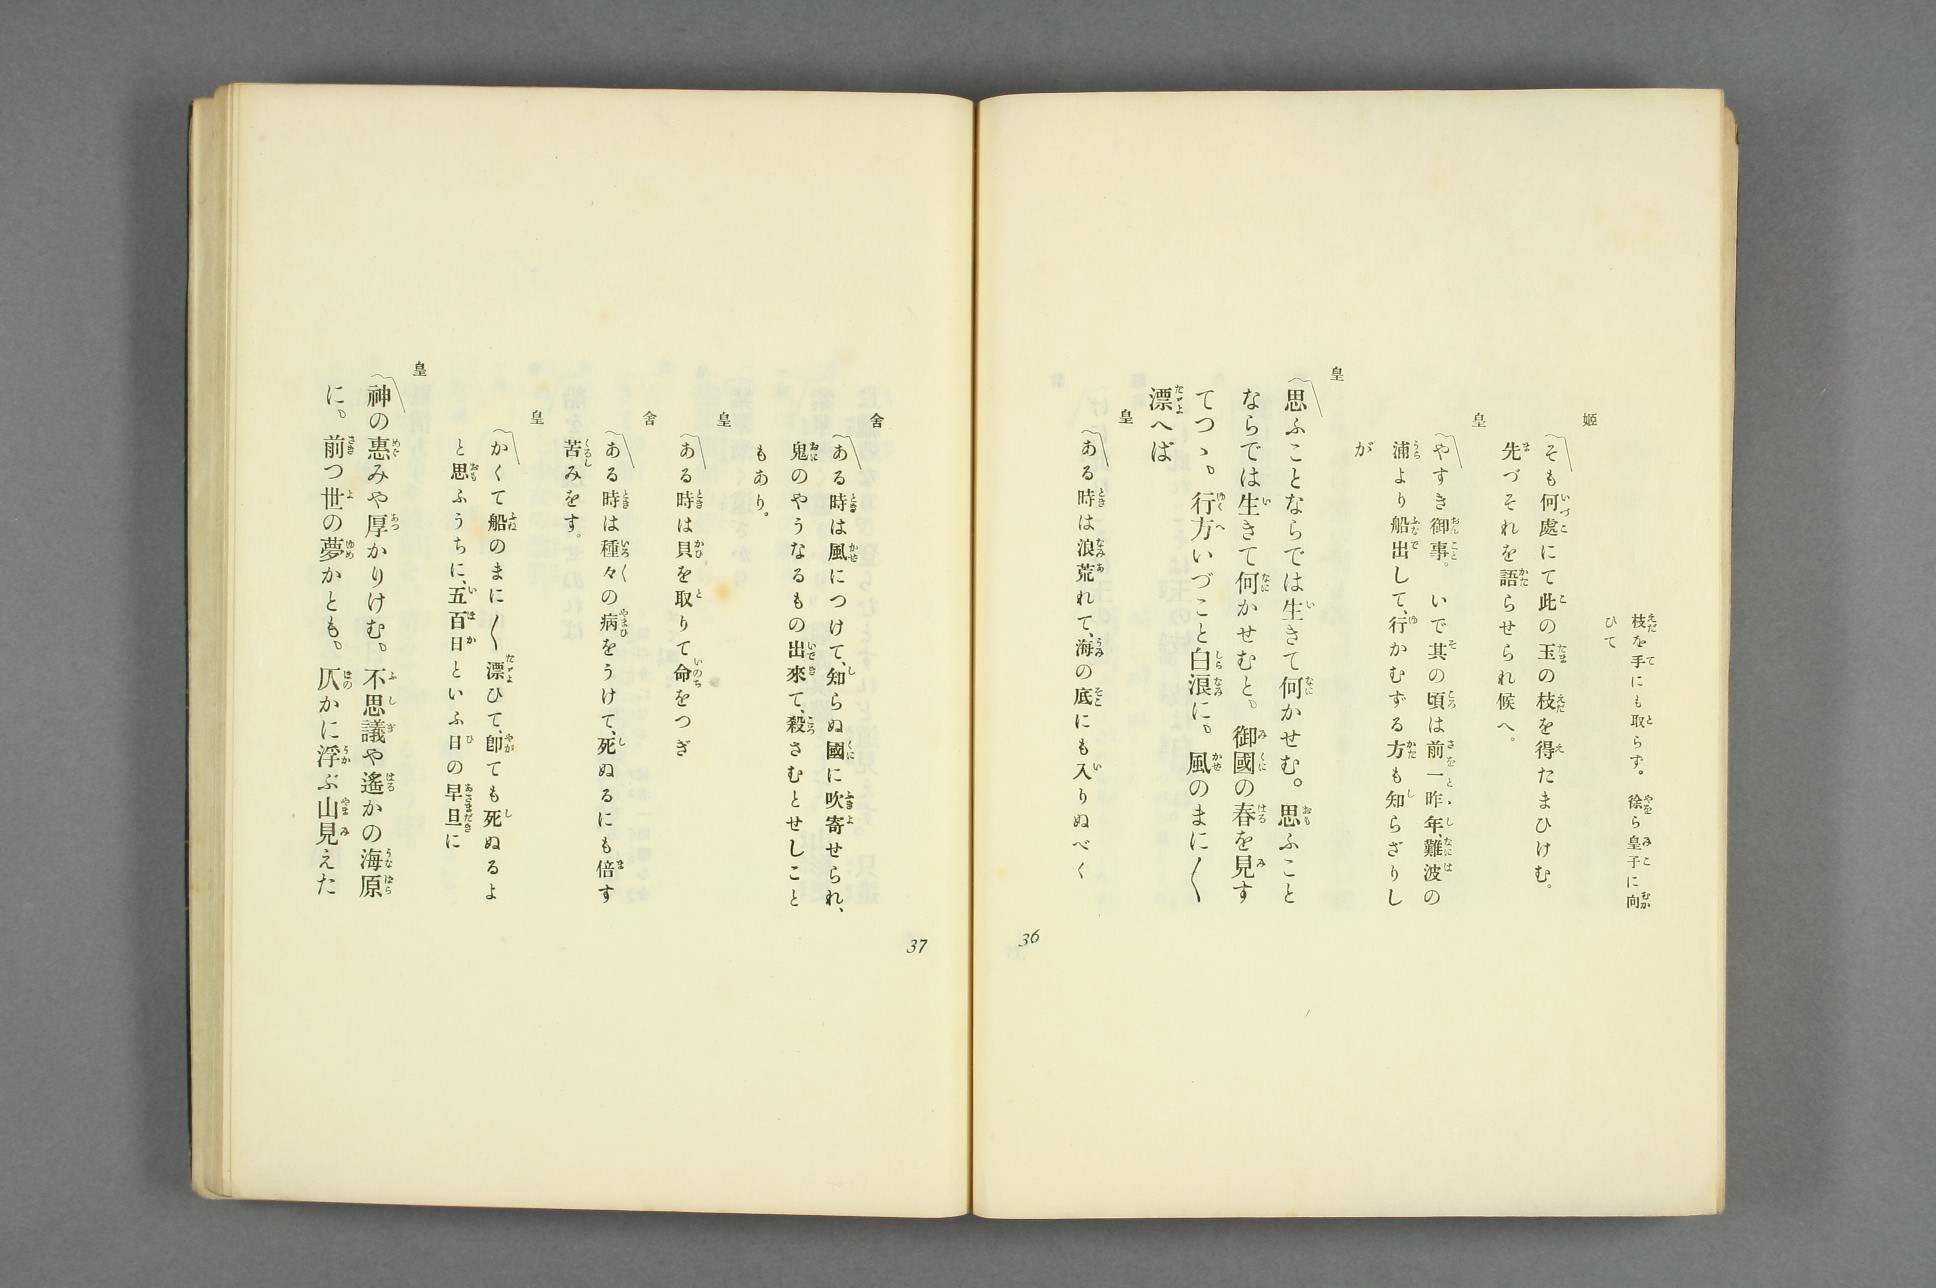 枝を手にも取らず。徐ら皇子に向
ひて
姫
そも何處にて此の玉の枝を得たまひけむ。
先づそれを語らせられ候へ。
皇
やすき御事。いで其の頃は前一昨年、難波の
浦より船出して、行かむずる方も知らざりし
が
皇
思ふことならでは生きて何かせむ。思ふこと
ならでは生きて何かせむと。御國の春を見す
てつゝ。行方いづこと白浪に。風のまに〱
漂へば
皇
ある時は浪荒れて、海の底にも入りぬべく
36
舍
ある時は風につけて、知らぬ國に吹寄せられ、
鬼のやうなるもの出來て、殺さむとせしこと
もあり。
皇
ある時は貝を取りて命をつぎ
舍
ある時は種々の病をうけて、死ぬるにも倍す
苦みをす。
皇
かくて船のまに〱漂ひて、卽ても死ぬるよ
と思ふうちに、五百日といふ日の早旦に
皇
神の惠みや厚かりけむ。不思議や遙かの海原
に。前つ世の夢かとも。仄かに浮ぶ山見えた
37